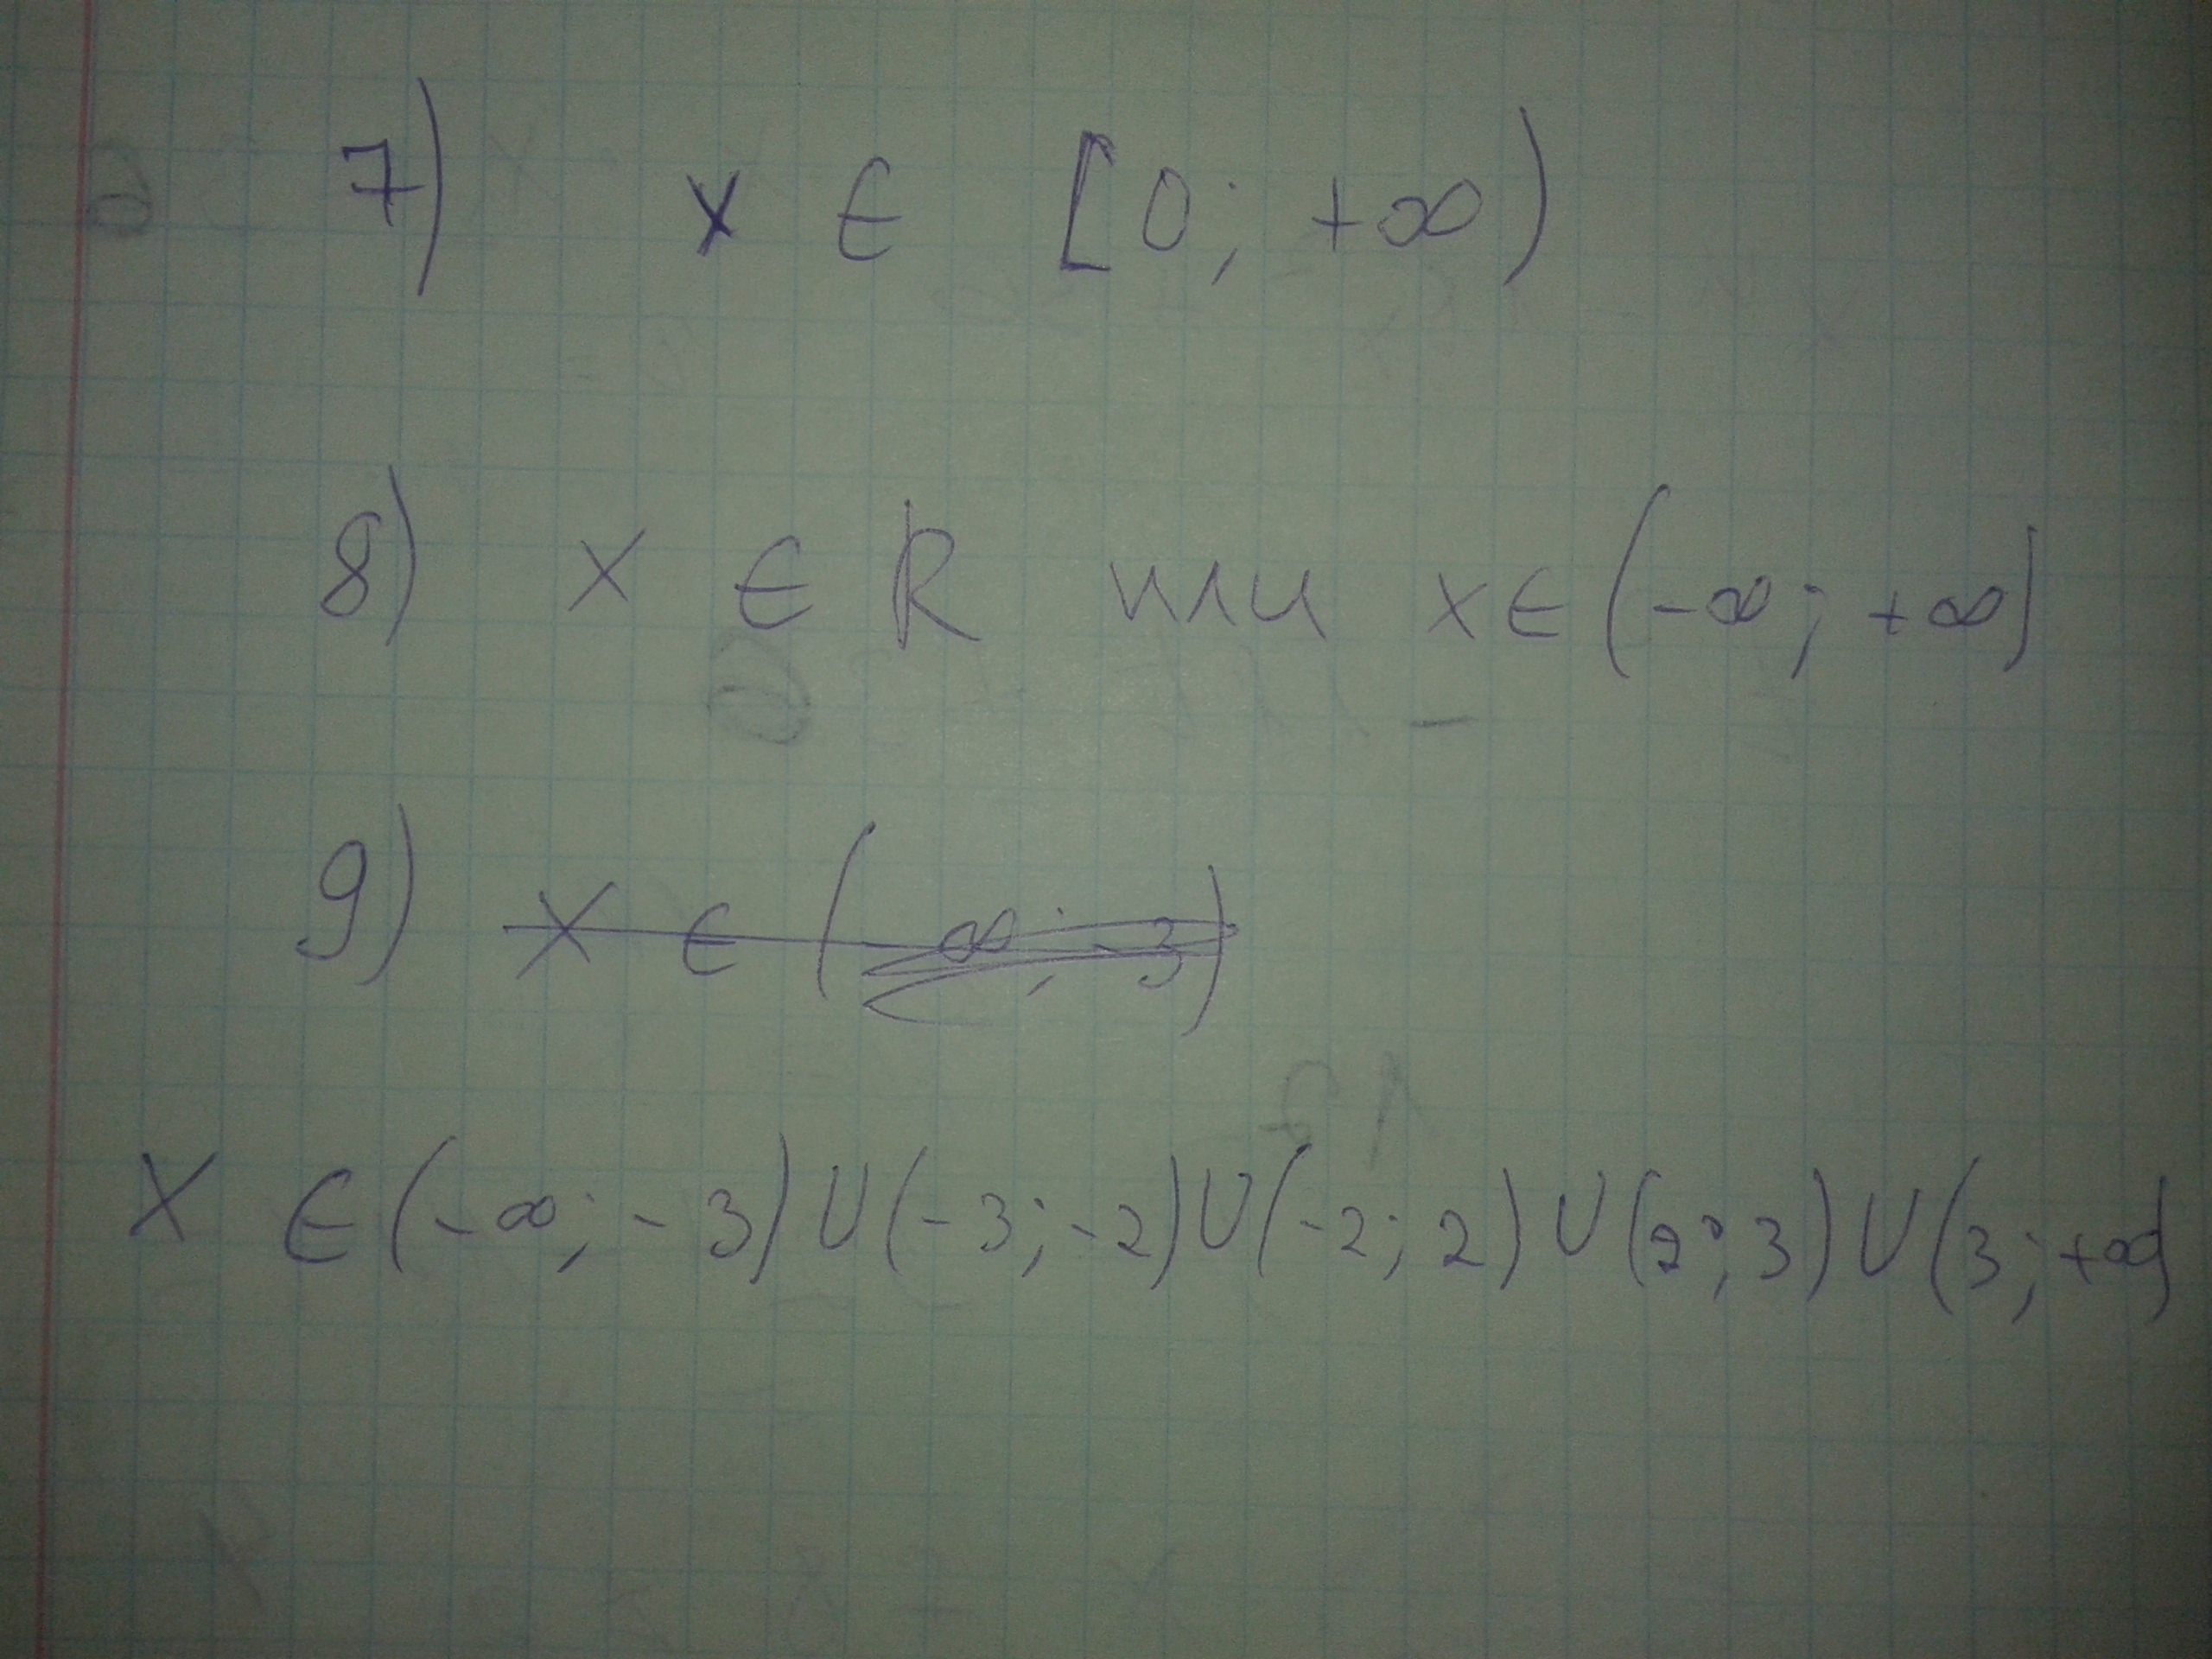 7) x ∈ [0; +∞)
8) x ∈ R или x ∈ (-∞; +∞)
9) x ∈ (-∞; -3)
x ∈ (-∞; -3) U (-3; -2) U (-2; 2) U (2; 3) U (3; +∞)